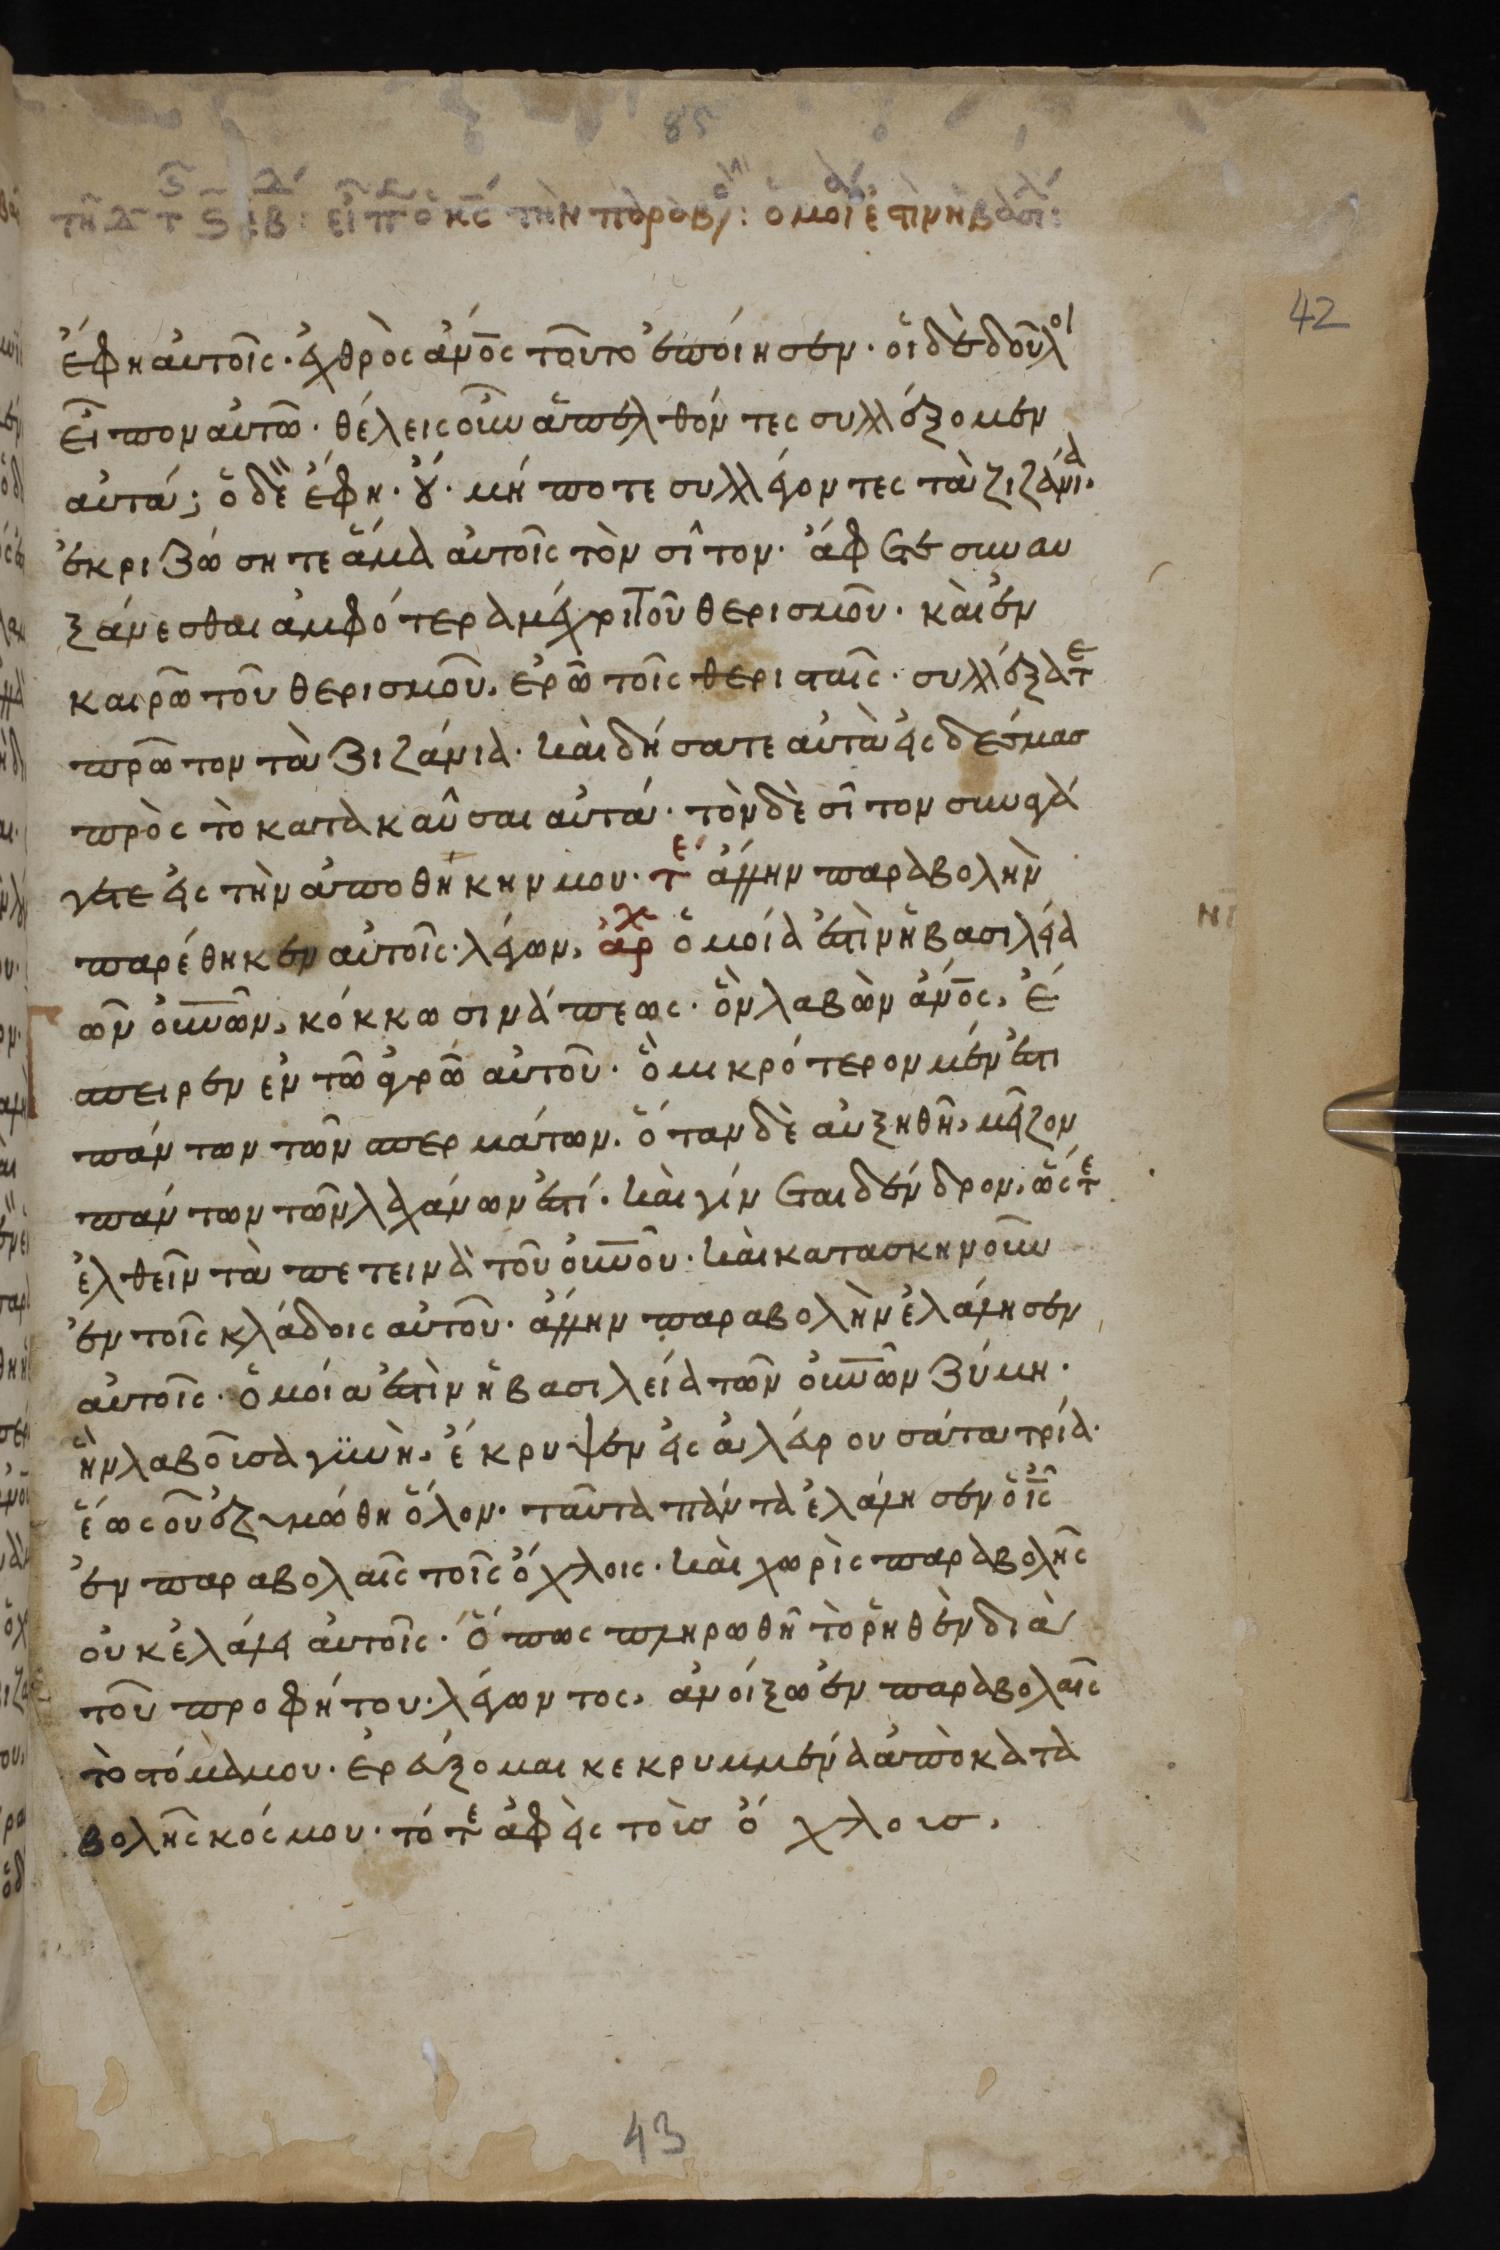 85
42
ἔφη αὐτοῖς· ἐχθρὸς ἀν̅ο̅ς τοῦτο ἐποίησεν· οἱ δὲ δοῦλοι
εἶπον αὐτῶ· θέλεις οὖν ἀπελθόντες συλλέξομεν
αὐτά; ὁ δὲ ἔφη· οὔ· μήποτε συλλέγοντες τὰ ζιζάνια·
ἐκριζώσητε ἅμα αὐτοῖς τὸν σῖτον· ἄφετε συναυ
ξάνεσθαι ἀμφότερα μέχρι τοῦ θερισμοῦ· καὶ ἐν
καιρῶ τοῦ θερισμοῦ, ἐρῶ τοῖς θερισταῖς· συλλέξατε
πρῶτον τὰ ζιζάνια· καὶ δήσατε αὐτὰ εἰς δέσμας
πρὸς τὸ κατακαῦσαι αὐτά· τὸν δὲ σῖτον συναγά
γετε εἰς τὴν ἀποθήκην μου· τε ἄλλην παραβολὴν
παρέθηκεν αὐτοῖς· λέγων, ἀρχ ὁμοία ἐστὶν ἡ βασιλεία
τῶν οὐ̅ν̅ῶν, κόκκω σινάπεως· ὃν λαβὼν ἄν̅ο̅ς, ἔ
σπειρεν ἐν τῶ ἀγρῶ αὐτοῦ· ὃ μικρότερον μέν ἐστι
πάντων τῶν σπερμάτων· ὅταν δὲ αὐξηθῆ, μεῖζον
πάντων τῶν λαχάνων ἐστί· καὶ γίνεται δένδρον, ὥστε
ἐλθεῖν τὰ πετεινὰ τοῦ οὐ̅ν̅οῦ· καὶ κατασκηνοῦν
ἐν τοῖς κλάδοις αὐτοῦ· ἄλλην παραβολὴν ἐλάλησεν
αὐτοῖς· ὁμοία ἐστὶν ἡ βασιλεία τῶν οὐ̅ν̅ῶν ζύμη·
ἣν λαβοῦσα γυνὴ, ἔκρυψεν εἰς ἀλεύρου σάτα τρία·
ἕως οὗ ἐζυμώθη ὅλον· ταῦτα πάντα ἐλάλησεν ὁ ι̅ς̅
ἐν παραβολαῖς τοῖς ὄχλοις· καὶ χωρὶς παραβολῆς
οὐκ ἐλάλει αὐτοῖς· ὅπως πληρωθῆ τὸ ῥηθὲν διὰ
τοῦ προφήτου· λέγοντος, ἀνοίξω ἐν παραβολαῖς
τὸ στόμα μου· ἐρεύξομαι κεκρυμμένα ἀπὸ κατα
βολῆς κόσμου· τότε ἀφεὶς τοὺς ὄχλους,
43